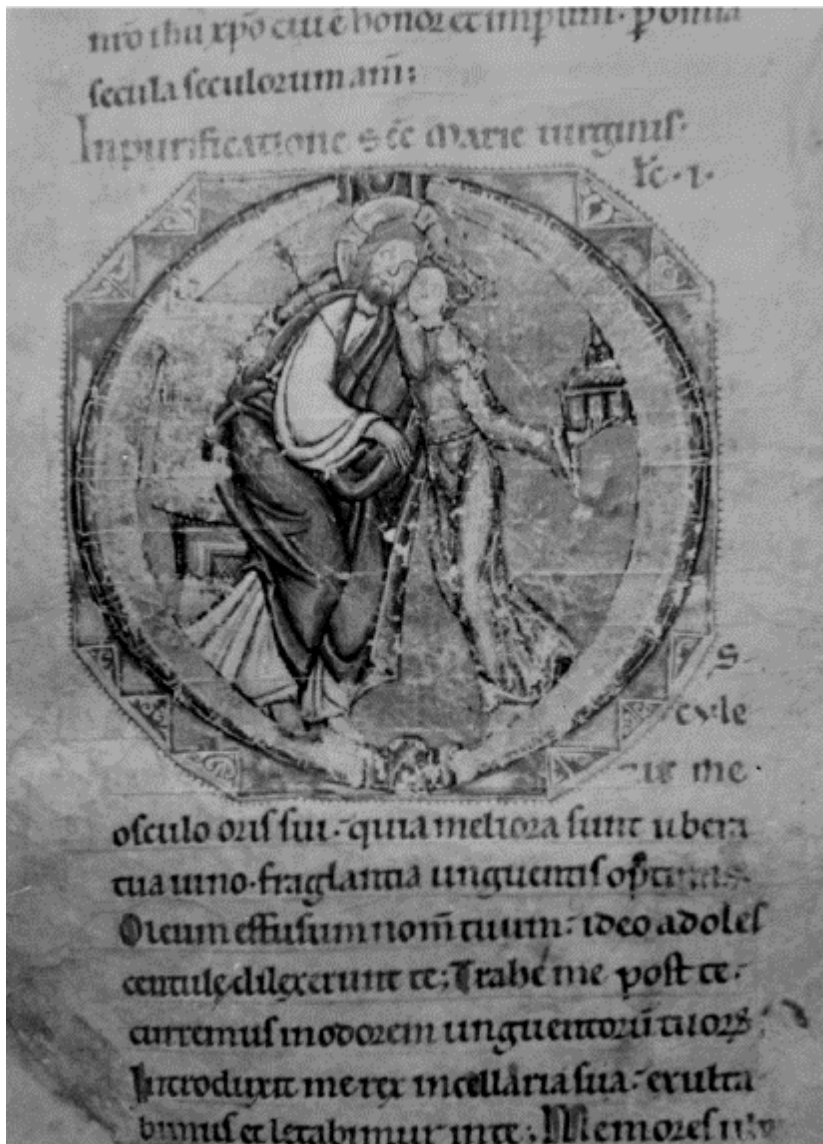 nr̄o ihu xp̄o cui ē honor et imp̄ium · p̄ omnia
secula seculorum am̄:
In purificatione sc̄e Marie uirginis·
lc̄·ı·
S
cule
me
osculo oris sui· quia meliora sunt ubera
tua uino· fraglantia unguentis optimis
Oleum effusum nom̄ tuum· ideo adoles
centulę dilexerunt te; Trahe me post te·
curremus in odorem unguentorū tuorꝝ
Introduxit me rex in cellaria sua· exulta
bimus et letabimur in te· Memores